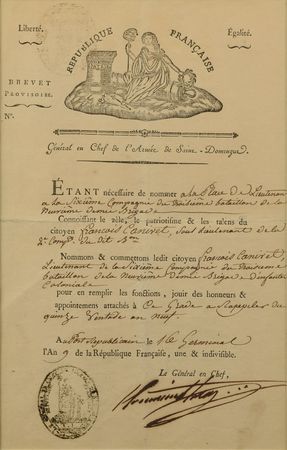 Liberté.
Égalité.
RÉPUBLIQUE FRANÇAISE
BREVET
PROVISOIRE.
N°.
Général en Chef de l'Armée de Saint-Domingue.
ÉTANT nécessaire de nommer a la Place De Lieutenant
a La Sixième Compagnie du Troisieme bataillon de la
Demie Brigade
Connoissant le zèle, le patriotisme & les talens du
citoyen François Caneret, Sous Lieutenant de la
Comp.
Nommons & commettons ledit citoyen François Caneret,
Lieutenant de la Sixième Compagnie du Troisieme
Bataillon de la Demie Brigade D'infanterie
Coloniale
pour en remplir les fonctions, jouir des honneurs &
appointemens attachés à Ce Grade a Rappeler du
quinze Ventose an neuf.
Au Port Republicain le 16 Germinal
l'An 9 de la République Française, une & indivisible.
Le Général en Chef,